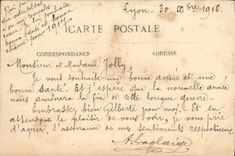 Lyon, 30 Xbre 1916.
CARTE POSTALE
CORRESPONDANCE ADRESSE
Monsieur et Madame Jolly,
je vous souhaite une bonne année et une
bonne santé. Et j'espère que la nouvelle année
nous amènera la fin de cette longue guerre.
Embrassez bien Gilberte pour moi. Et en
attendant le plaisir de vous voir, je vous prie
d'agréer l'assurance de mes sentiments respectueux